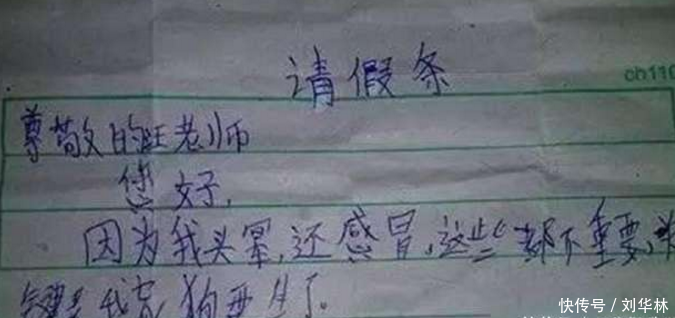 请假条
ch110
尊敬的旺老师
您好,
因为我头晕,还感冒,这些都不重要,关
键是我家狗要生了。
快传号/刘华林